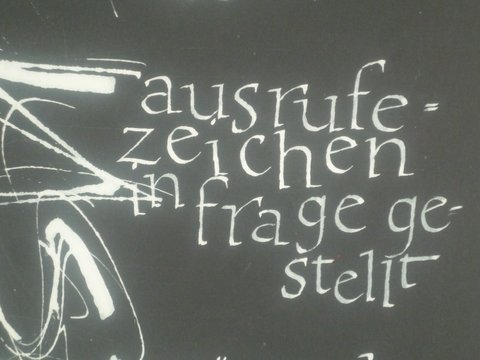 ausrufe=
zeichen
in frage ge-
stellt